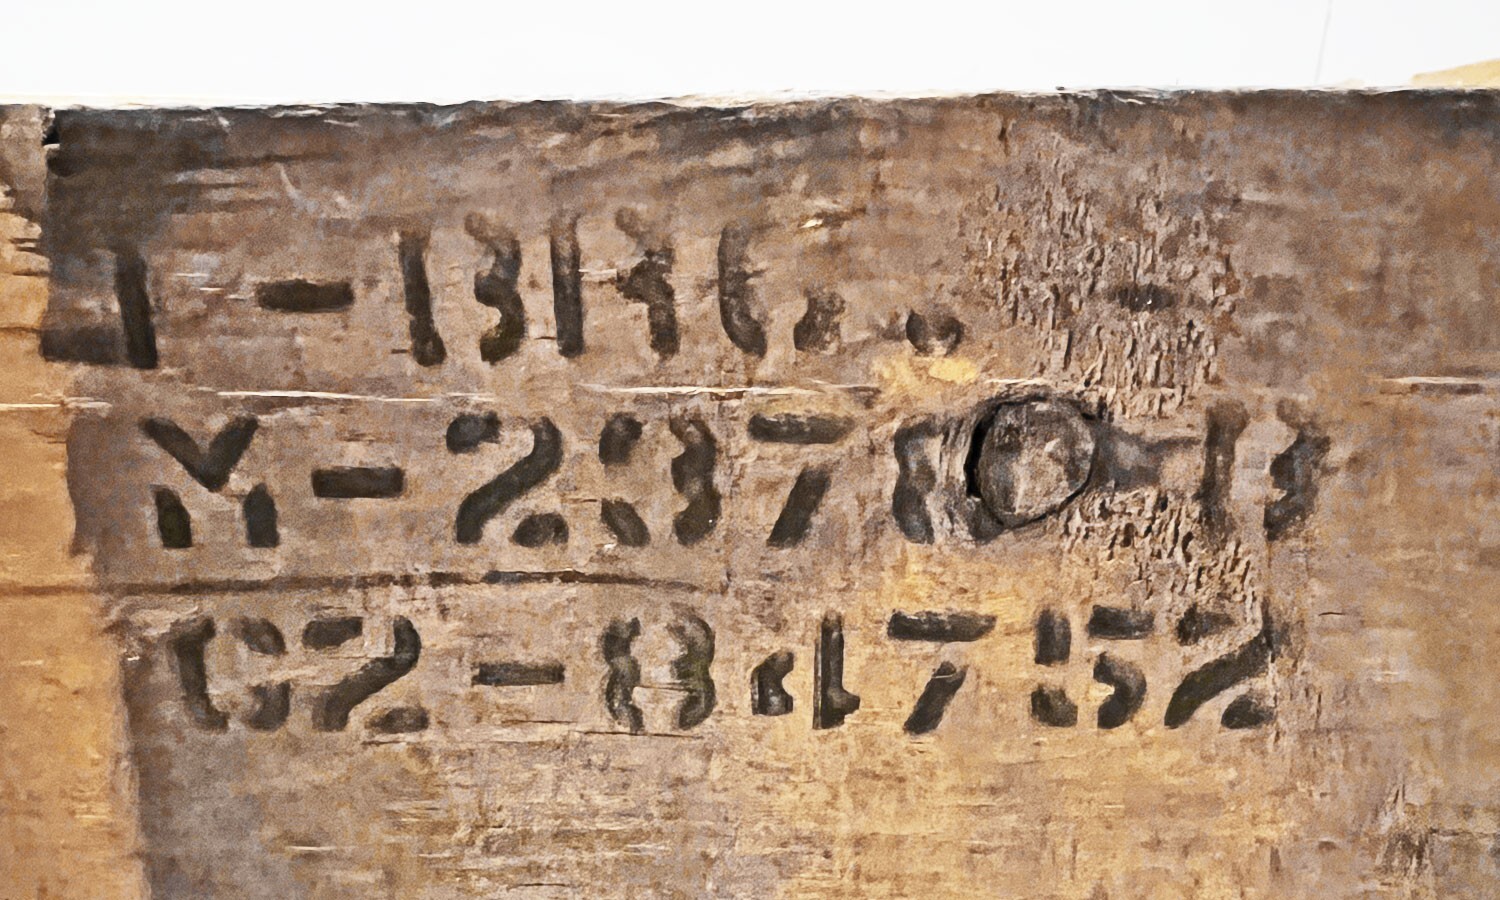 1-BRG.
M-2378
G2-84752